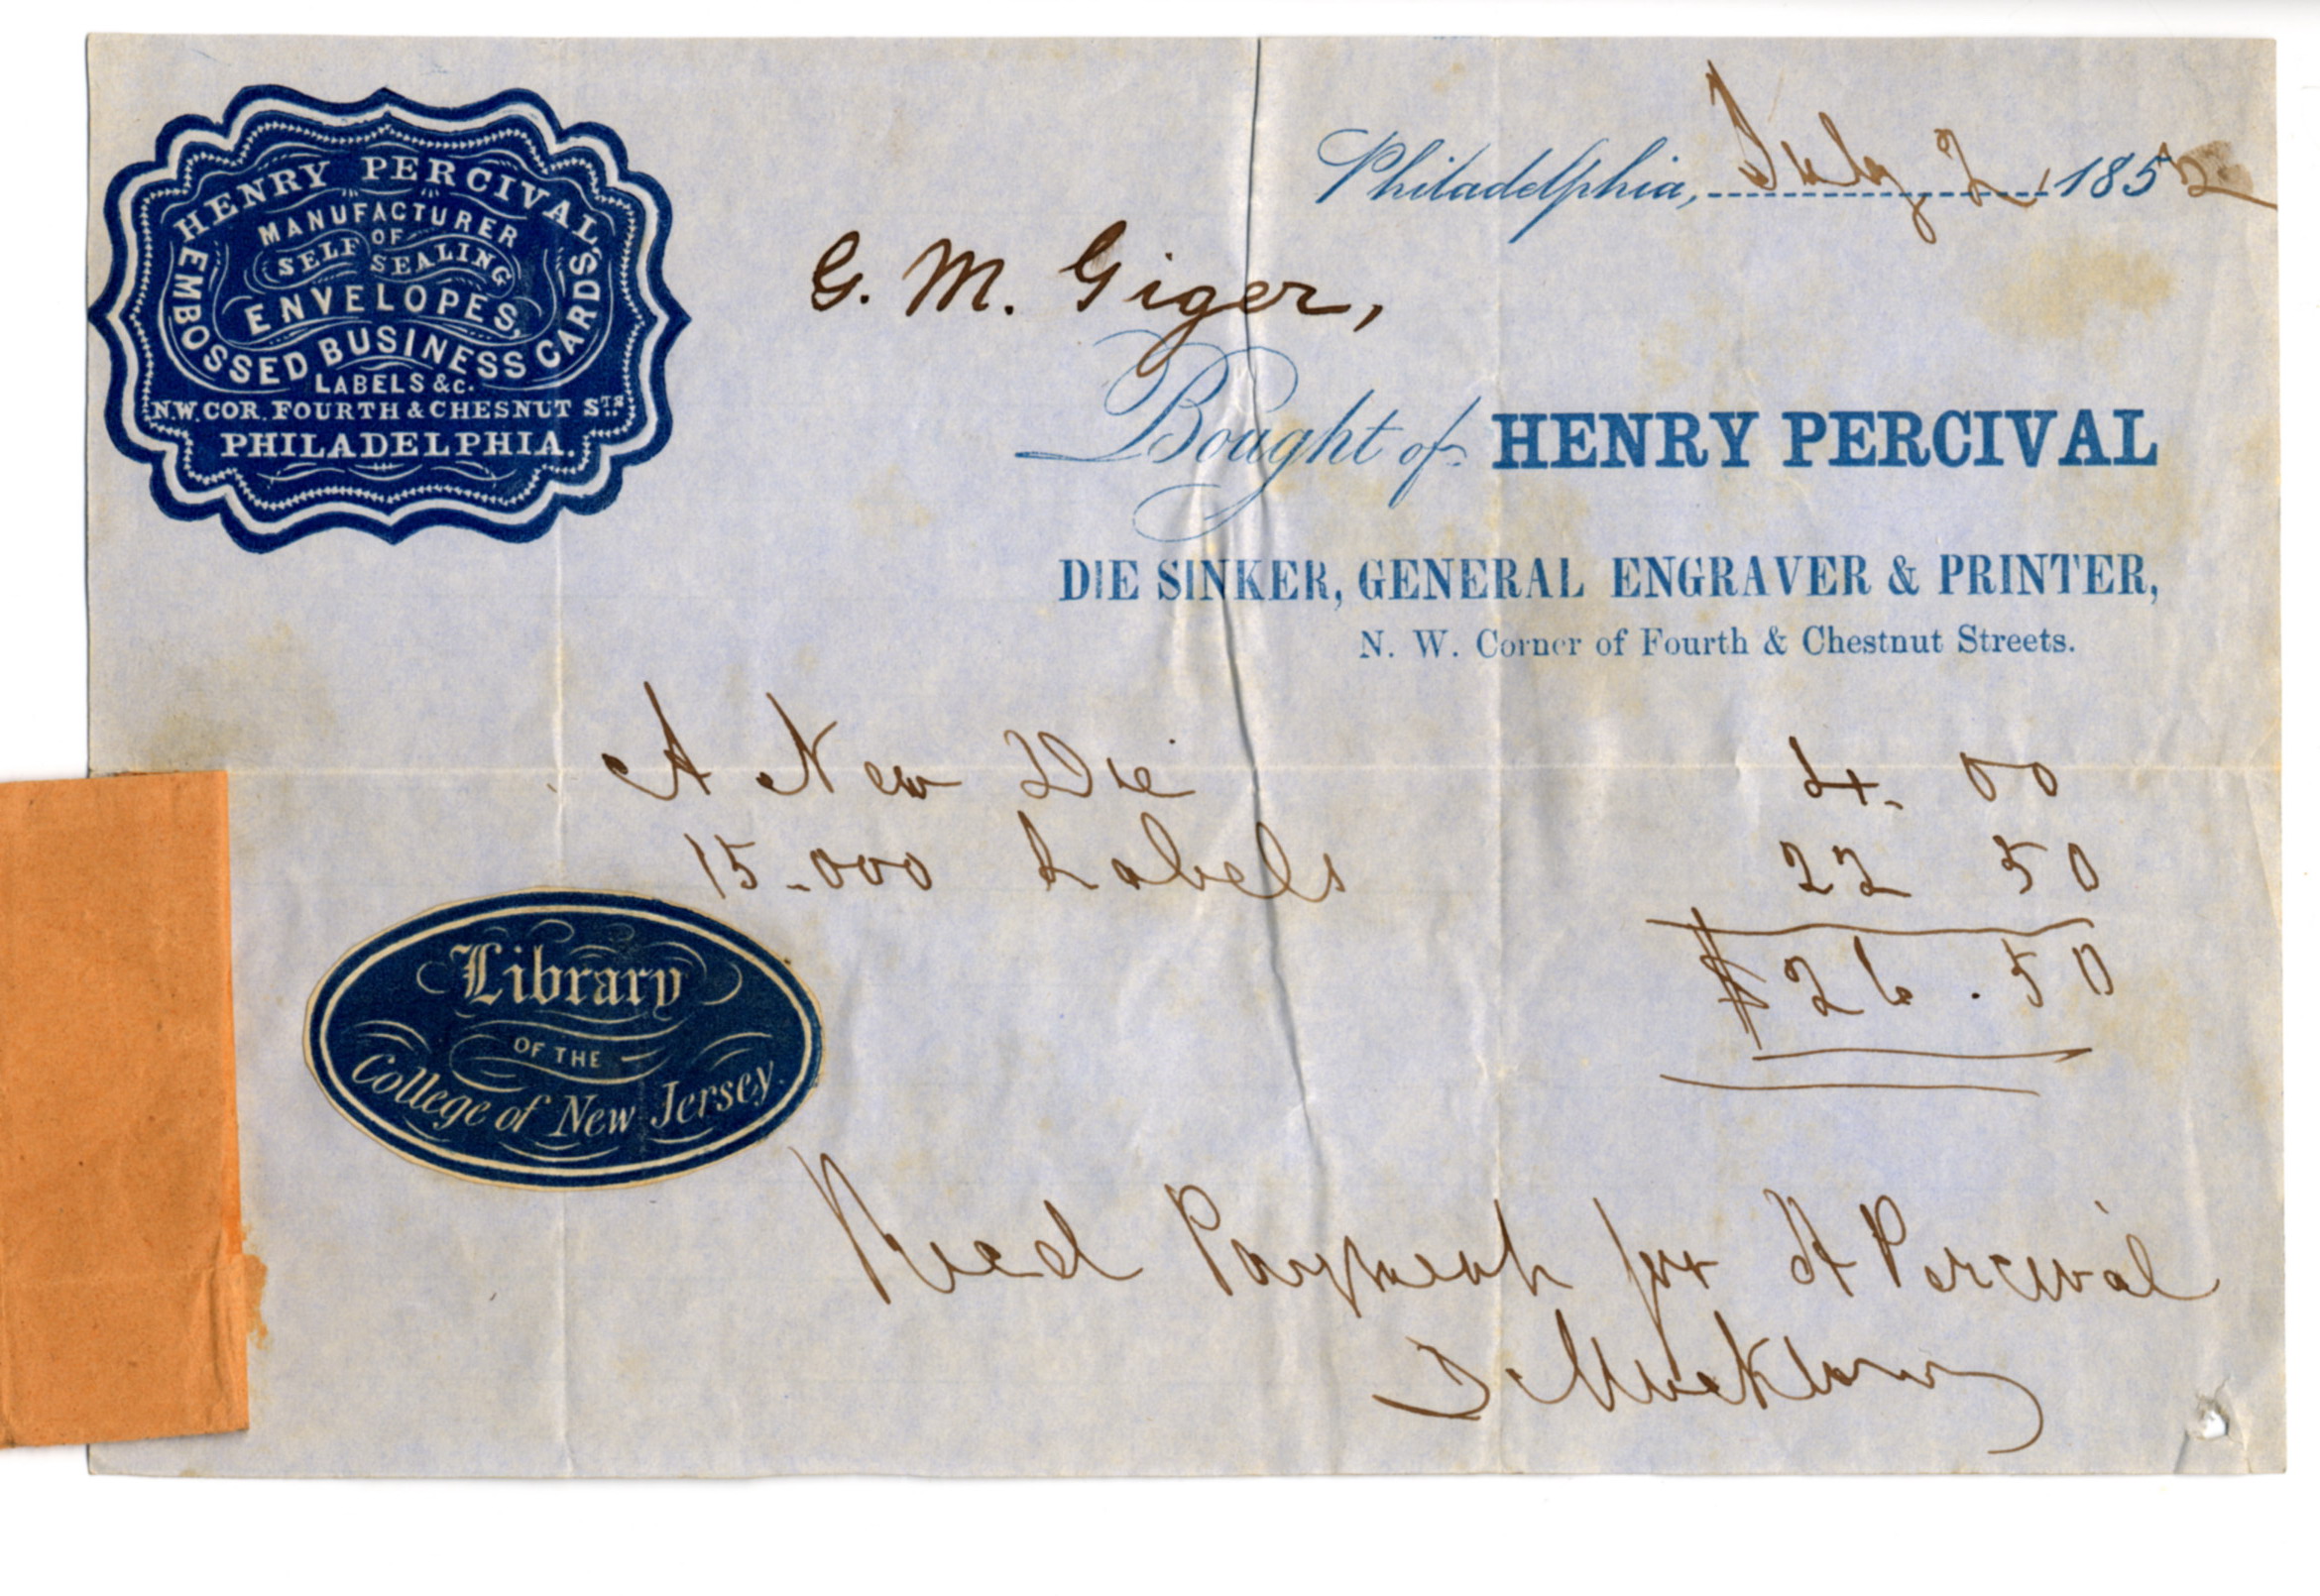 HENRY PERCIVAL,
MANUFACTURER
OF
SELF SEALING
ENVELOPES,
EMBOSSED BUSINESS CARDS,
LABELS &c.
N.W. COR. FOURTH & CHESNUT STS.
PHILADELPHIA.
Philadelphia, July 2, 1852
G. M. Giger,
Bought of HENRY PERCIVAL
DIE SINKER, GENERAL ENGRAVER & PRINTER,
N. W. Corner of Fourth & Chestnut Streets.
A New Die 4. 00
15.000 Labels 22 50
$26.50
Library
OF THE
College of New Jersey.
Recd Payment for H Percival